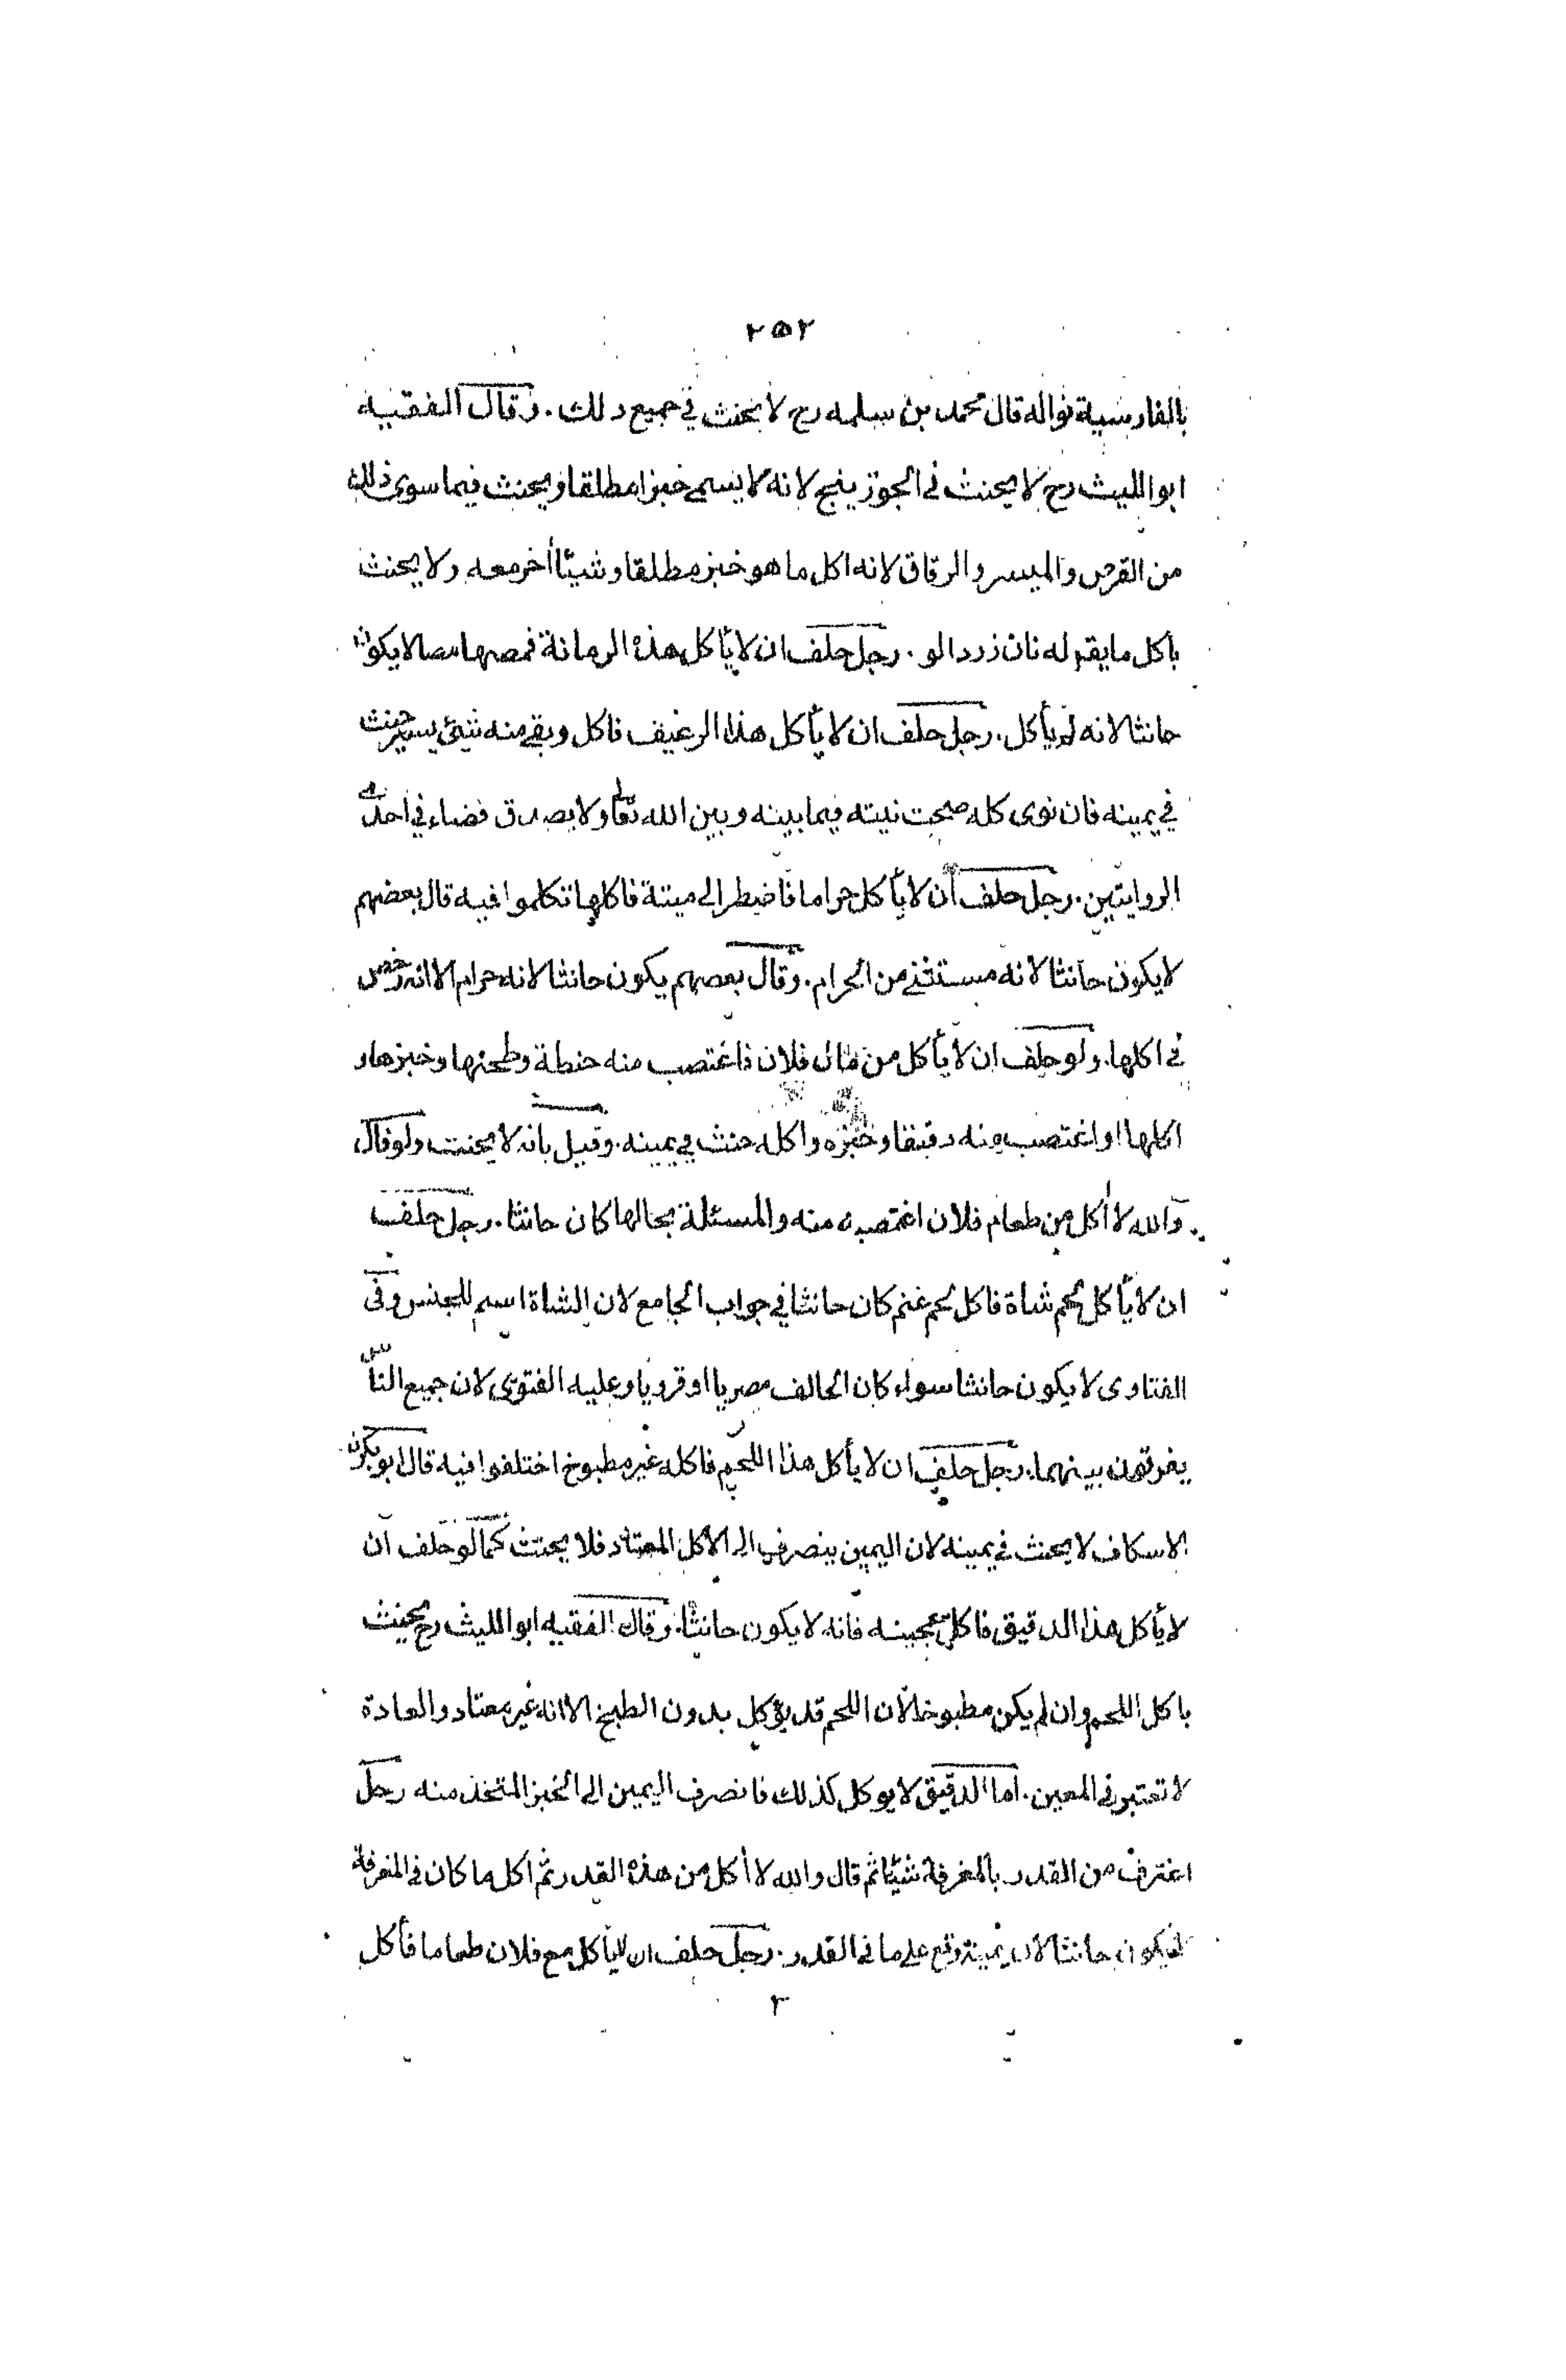 ٢٥٢
بالفارسية نواله قال محمد بن سلمه رح لا يحنث في جميع ذلك . وقال الفقيه
ابو الليث رح لا يحنث في الجوزينج لانه لا يسمى خبزا مطلقا ويحنث فيما سوى ذلك
من القرص والميسر والرقاق لانه اكل ما هو خبز مطلقا وشيئا أخر معه ولا يحنث
باكل ما يقر له نان زردالو . رجل حلف ان لا يأكل هذه الرمانة فمصها مصا لا يكون
حانثا لانه لم يأكل . رجل حلف ان لا يأكل هذا الرغيف فاكل وبقي منه شيئ يسير حنث
في يمينه فان نوى كله صحت نيته فيما بينه وبين الله تعالى ولا يصدق قضاء في احدى
الروايتين . رجل حلف أن لا يأكل حراما فاضطر الى ميتة فاكلها تكلموا فيه قال بعضهم
لا يكون حانثا لانه مستثنى من الحرام . وقال بعضهم يكون حانثا لانه حرام الا انه رخص
في اكلها . ولو حلف ان لا يأكل من مال فلان فاغتصب منه حنطة وطحنها وخبزها و
اكلها او اغتصب منه دقيقا وخبزه واكله حنث في يمينه . وقيل بانه لا يحنث ولو قال
والله لا أكل من طعام فلان اغتصبه منه والمسئلة بحالها كان حانثا . رجل حلف
ان لا يأكل لحم شاة فاكل لحم غنم كان حانثا في جواب الجامع لان الشاة اسم للجنس وفي
الفتاوى لا يكون حانثا سواء كان الحالف مصريا او قرويا وعليه الفتوى لان جميع الناس
يفرقون بينهما . رجل حلف ان لا يأكل هذا اللحم فاكله غير مطبوخ اختلفوا فيه قال ابو بكر
الاسكاف لا يحنث في يمينه لان اليمين ينصرف الى الاكل المعتاد فلا يحنث كما لو حلف ان
لا يأكل هذا الدقيق فاكل عجينه فانه لا يكون حانثا . وقال الفقيه ابو الليث رح يحنث
باكل اللحم وان لم يكن مطبوخا لان اللحم قد يؤكل بدون الطبخ الا انه غير معتاد والعادة
لا تعتبر في المعين . اما الدقيق لا يوكل كذلك فانصرف اليمين الى الخبز المتخذ منه رجل
اغترف من القدر بالمغرفة شيئا ثم قال والله لا أكل من هذه القدر ثم اكل ما كان في المغرفة
لا يكون حانثا لان يمينه وقع على ما في القدر . رجل حلف ان لا يأكل مع فلان طعاما فأكل
٢